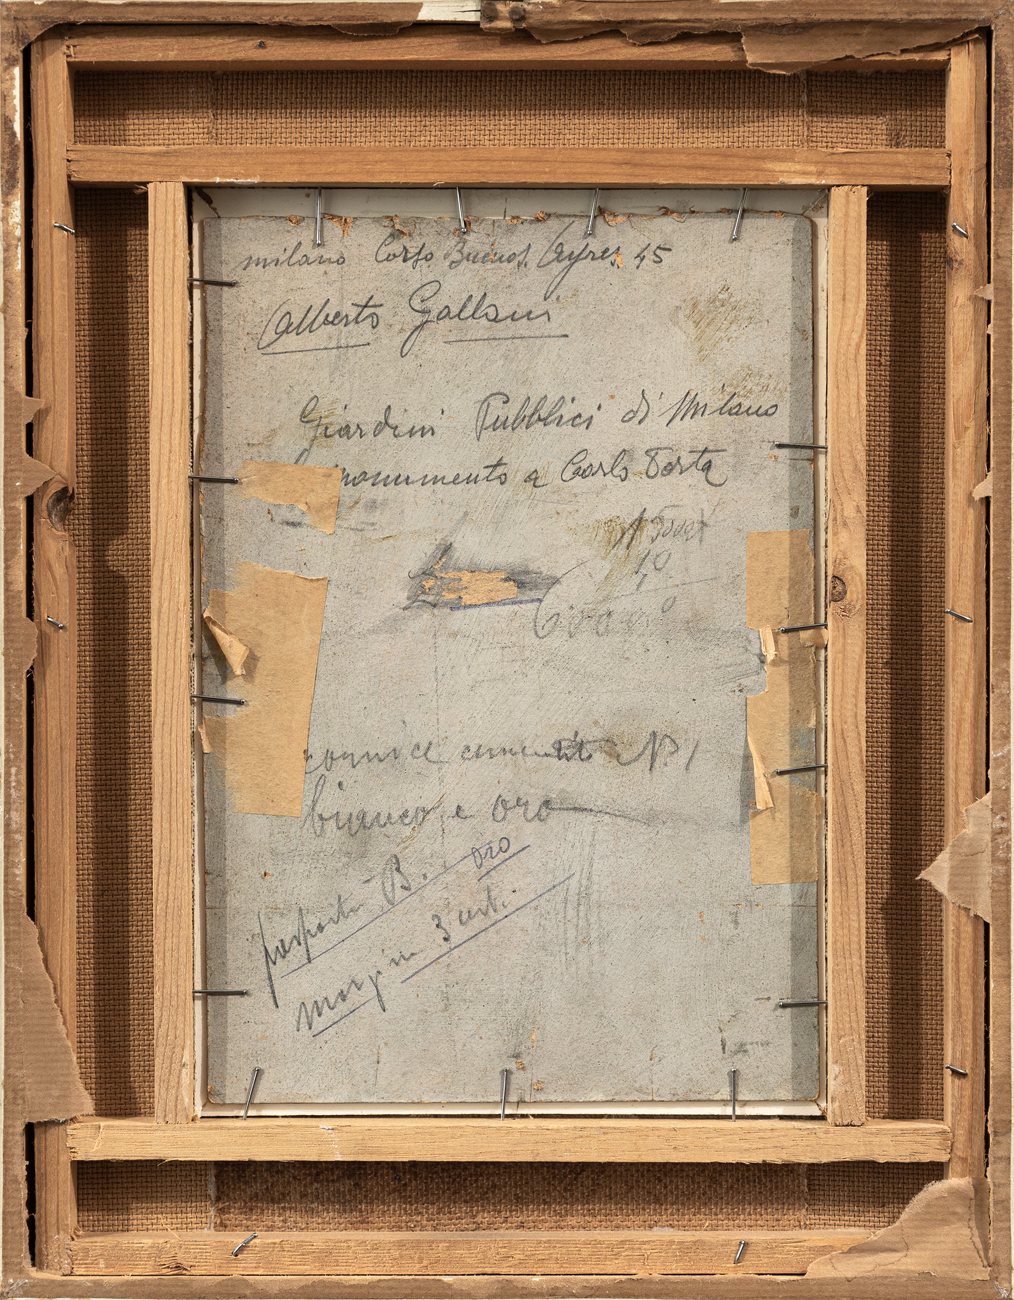 milano Corso Buenos Ayres 45
Alberto Gallani
Giardini Pubblici di Milano
monumento a Carlo Porta
10
cornice N° 1
bianco e oro
B. oro
margin 3 cent.